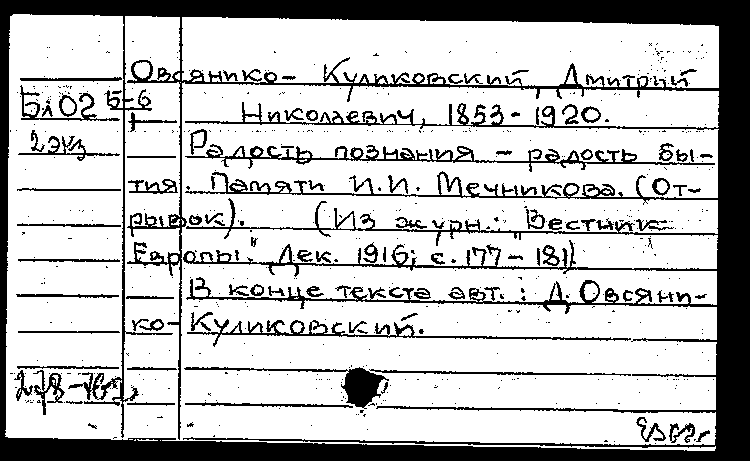 Овсянико- Куликовский, Дмитрий
Бл02 Б-6
Николаевич, 1853-1920.
2 экз
Радость познания - радость бы-
тия. Памяти И.И. Мечникова. (От-
рывок). (Из журн.: "Вестник
Европы". Дек. 1916; с. 177-181).
В конце текста авт.: Д. Овсяни-
ко-Куликовский.